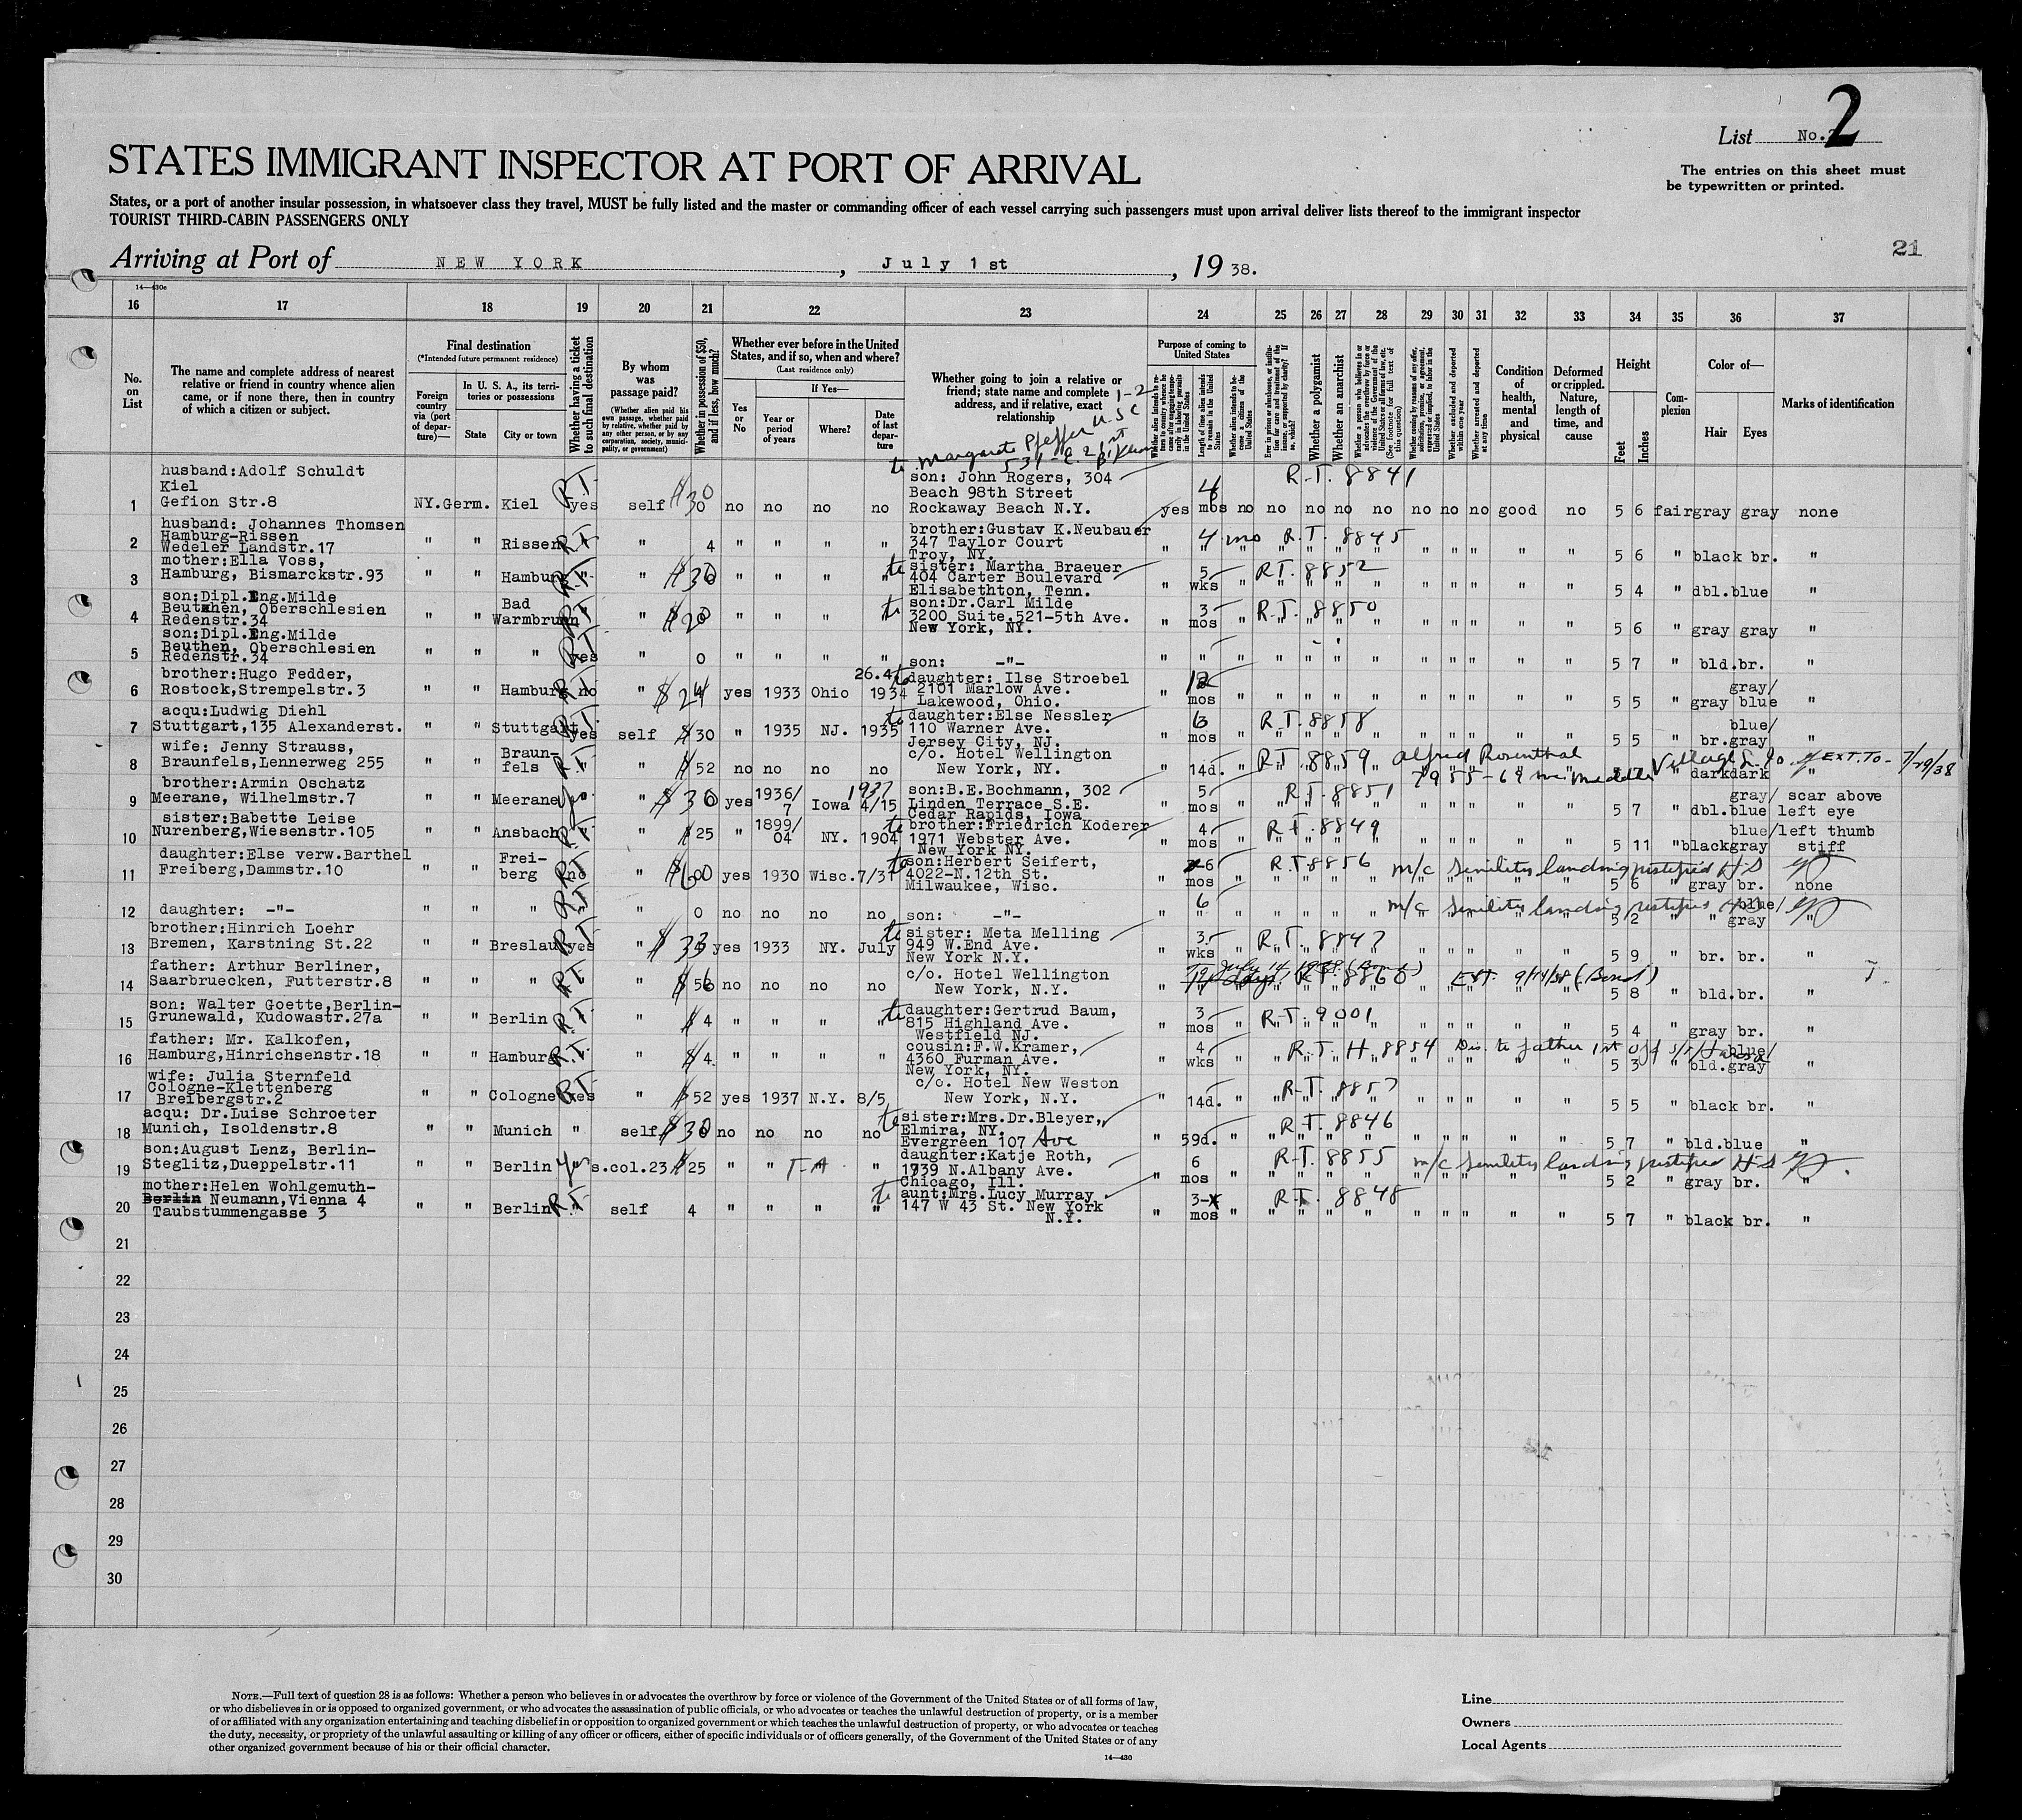 2
List No.
The entries on this sheet must
be typewritten or printed.
STATES IMMIGRANT INSPECTOR AT PORT OF ARRIVAL
States, or a port of another insular possession, in whatsoever class they travel, MUST be fully listed and the master or commanding officer of each vessel carrying such passengers must upon arrival deliver lists thereof to the immigrant inspector
TOURIST THIRD-CABIN PASSENGERS ONLY
21
Arriving at Port of NEW YORK, July 1st, 1938.
14—430c
16 17 18 19 20 21 22 23 24 25 26 27 28 29 30 31 32 33 34 35 36 37
No. on List
The name and complete address of nearest relative or friend in country whence alien came, or if none there, then in country of which a citizen or subject.
Final destination
(*Intended future permanent residence)
Foreign country via (port of departure)—
In U. S. A., its territories or possessions
State
City or town
Whether having a ticket to such final destination
By whom was passage paid?
(Whether alien paid his own passage, whether paid by relative, whether paid by any other person, or by any corporation, society, municipality, or government)
Whether in possession of $50, and if less, how much?
Whether ever before in the United States, and if so, when and where?
(Last residence only)
If Yes—
Yes or No
Year or period of years
Where?
Date of last departure
Whether going to join a relative or friend; state name and complete address, and if relative, exact relationship
Purpose of coming to United States
Length of time alien intends to remain in the United States
Whether alien intends to become a citizen of the United States
Whether a polygamist
Whether an anarchist
Whether excluded and deported within one year
Whether arrested and deported at any time
Condition of health, mental and physical
Deformed or crippled. Nature, length of time, and cause
Height
Feet
Inches
Complexion
Color of—
Hair
Eyes
Marks of identification
1-2
Margarete Pfeffer U.S.C
husband:Adolf Schuldt son: John Rogers, 304 R.T. 8841
Kiel Beach 98th Street 4
1 Gefion Str.8 NY.Germ. Kiel yes self 30 no no no no Rockaway Beach N.Y. yes mos no no no no no no no no good no 5 6 fair gray gray none
husband: Johannes Thomsen brother:Gustav K.Neubauer
2 Hamburg-Rissen " " Rissen R.T. " 4 " " " " 347 Taylor Court " 4 mo R.T. 8845
Wedeler Landstr.17 Troy, NY. 5 6 " black br. "
mother:Ella Voss, to sister: Martha Braeuer 5
3 Hamburg, Bismarckstr.93 " " Hamburg " " $30 " " " " 404 Carter Boulevard " wks " R.T. 8852
Elisabethton, Tenn. 5 4 " dbl.blue "
son:Dipl.Eng.Milde Bad to son:Dr.Carl Milde 3
4 Beuthen, Oberschlesien " " Warmbrunn " $20 " " " 3200 Suite.521-5th Ave. " mos " R.T. 8850
Redenstr.34 New York, NY. 5 6 " gray gray "
son:Dipl.Eng.Milde
5 Beuthen, Oberschlesien " " " yes " 0 " " " " son: -"- " " "
Redenstr.34 5 7 " bld.br. "
brother:Hugo Fedder, 26.4. daughter: Ilse Stroebel gray/
6 Rostock,Strempelstr.3 " " Hamburg no " $24 yes 1933 Ohio 1934 2101 Marlow Ave. " mos "
Lakewood, Ohio. 5 5 " gray blue "
acqu:Ludwig Diehl to daughter:Else Nessler 6 R.T. 8858 blue/
7 Stuttgart,135 Alexanderst. " " Stuttgart yes self $30 " 1935 NJ. 1935 110 Warner Ave. " mos "
Jersey City, NJ. 5 5 " br.gray "
wife: Jenny Strauss, Braun- c/o. Hotel Wellington R.T. 8859 Alfred Rosenthal Ext. to 7/29/38
8 Braunfels,Lennerweg 255 " " fels R.T. " $52 no no no no New York, NY. " 14d. " " dark dark "
brother:Armin Oschatz 1937 son:B.E.Bochmann, 302 5 R.T. 8851 gray/ scar above
9 Meerane, Wilhelmstr.7 " " Meerane " $30 yes 1936/7 Iowa 4/15 Linden Terrace S.E. " mos "
Cedar Rapids, Iowa 5 7 " dbl.blue left eye
sister:Babette Leise to brother:Friedrich Koderer 4 R.T. 8849 blue/ left thumb
10 Nurenberg,Wiesenstr.105 " " Ansbach " $25 " 1899/04 NY. 1904 1971 Webster Ave. " mos "
New York NY. 5 11 " black gray stiff
daughter:Else verw.Barthel Frei- to son:Herbert Seifert, 6 R.T. 8856 m/c Senility landing justified
11 Freiberg,Dammstr.10 " " berg no " $60 yes 1930 Wisc. 7/31 4022-N.12th St. " mos "
Milwaukee, Wisc. 5 6 " gray br. none
12 daughter: -"- " " " " 0 no no no no son: -"- " 6 m/c Senility landing justified blue/
5 2 " " gray "
brother:Hinrich Loehr to sister: Meta Melling 3
13 Bremen, Karstning St.22 " " Breslau yes " $33 yes 1933 NY. July 949 W.End Ave. " wks " R.T. 8847
New York N.Y. 5 9 " br. br. "
father: Arthur Berliner, c/o. Hotel Wellington July 14, 1938 (Bond)
14 Saarbruecken, Futterstr.8 " " " R.T. " $56 no no no no New York, N.Y. " R.T. 8860 Ext. 9/14/38 (Bond)
5 8 " bld.br. "
son: Walter Goette,Berlin- to daughter:Gertrud Baum, 3
15 Grunewald, Kudowastr.27a " " Berlin R.T. " $4 " " " " 815 Highland Ave. " mos " R.T. 9001
Westfield NJ. 5 4 " gray br. "
father: Mr. Kalkofen, cousin:F.W.Kramer, 4 R.T. H.8854 Dis. to father 1st off blue/
16 Hamburg,Hinrichsenstr.18 " " Hamburg R.T. " $4. " " " " 4360 Furman Ave. " wks
New York, NY. 5 3 " bld.gray "
wife: Julia Sternfeld c/o. Hotel New Weston
17 Cologne-Klettenberg " " Cologne yes " $52 yes 1937 N.Y. 8/5 New York, N.Y. " 14d. " R.T. 8857
Breibergstr.2 5 5 " black br. "
acqu: Dr.Luise Schroeter to sister:Mrs.Dr.Bleyer, R.T. 8846
18 Munich, Isoldenstr.8 " " Munich " self $30 no no no no Elmira, NY. " 59d. "
Evergreen 107 Ave 5 7 " bld.blue "
son:August Lenz, Berlin- daughter:Katje Roth, R.T. 8855 m/c Senility landing justified
19 Steglitz,Dueppelstr.11 " " Berlin Yes s.col.23 $25 " " " 1739 N.Albany Ave. " 6 mos "
Chicago, Ill. 5 2 " gray br. "
mother:Helen Wohlgemuth- to aunt:Mrs.Lucy Murray 3 R.T. 8848
20 Berlin Neumann,Vienna 4 " " Berlin R.T. self 4 " " " " 147 W 43 St. New York " mos "
Taubstummengasse 3 N.Y. 5 7 " black br. "
21
22
23
24
25
26
27
28
29
30
NOTE.—Full text of question 28 is as follows: Whether a person who believes in or advocates the overthrow by force or violence of the Government of the United States or of all forms of law,
or who disbelieves in or is opposed to organized government, or who advocates the assassination of public officials, or who advocates or teaches the unlawful destruction of property, or is a member
of or affiliated with any organization entertaining and teaching disbelief in or opposition to organized government or which teaches the unlawful destruction of property, or who advocates or teaches
the duty, necessity, or propriety of the unlawful assaulting or killing of any officer or officers, either of specific individuals or of officers generally, of the Government of the United States or of any
other organized government because of his or their official character.
14—430
Line
Owners
Local Agents